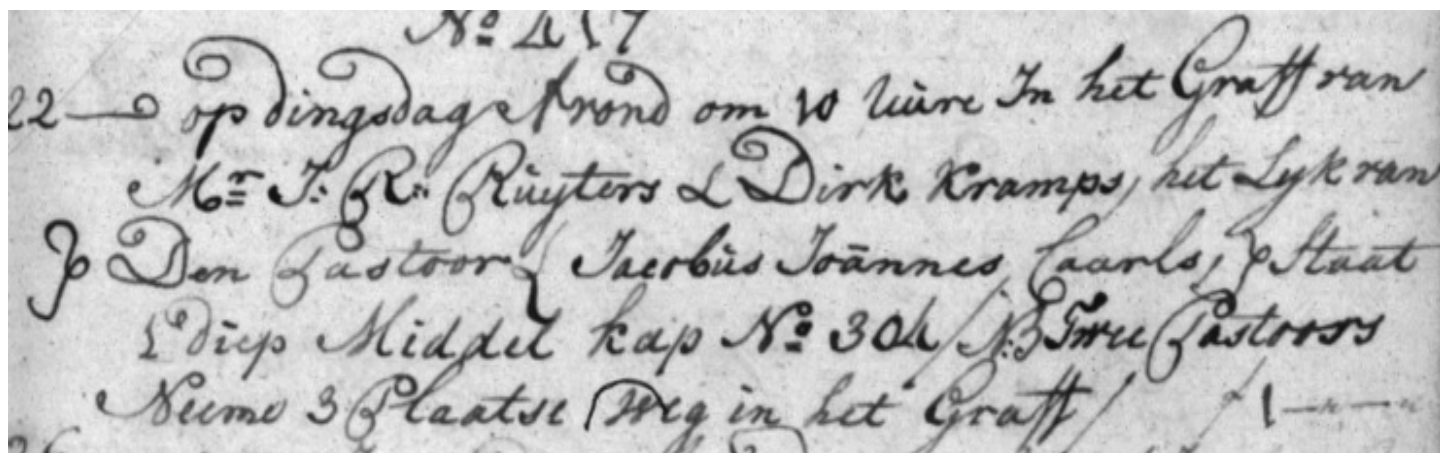 No 457
22 — op dingsdag Avond om 10 Uùre In het Graff van
Mr. J: R: Rùyters & Dirk Kramps, het Lyk van
Den Pastoor Jacobùs Joānnes Caarls, Staat
diep Middel kap No 304 / NB Twee Pastoors
Neeme 3 Plaatse Weg in het Graff / 1 — " — "